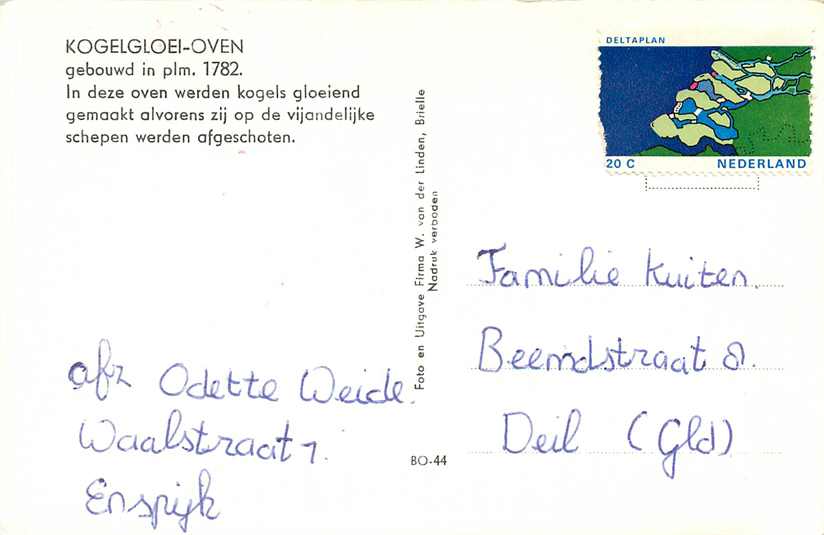 KOGELGLOEI-OVEN
gebouwd in plm. 1782.
In deze oven werden kogels gloeiend
gemaakt alvorens zij op de vijandelijke
schepen werden afgeschoten.
afz Odette Weide.
Waalstraat 1.
Enspijk
Foto en Uitgave Firma W. van der Linden, Brielle
Nadruk verboden
BO-44
DELTAPLAN
20 C NEDERLAND
Familie Kuiten.
Beemdstraat 8.
Deil (Gld)